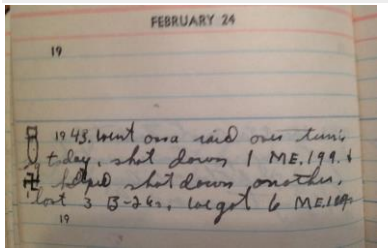 FEBRUARY 24
19
1943. Went on a raid over Tunis
today, shot down 1 ME.199. &
helped shot down another.
lost 3 B-26s. we got 6 ME.109s
19